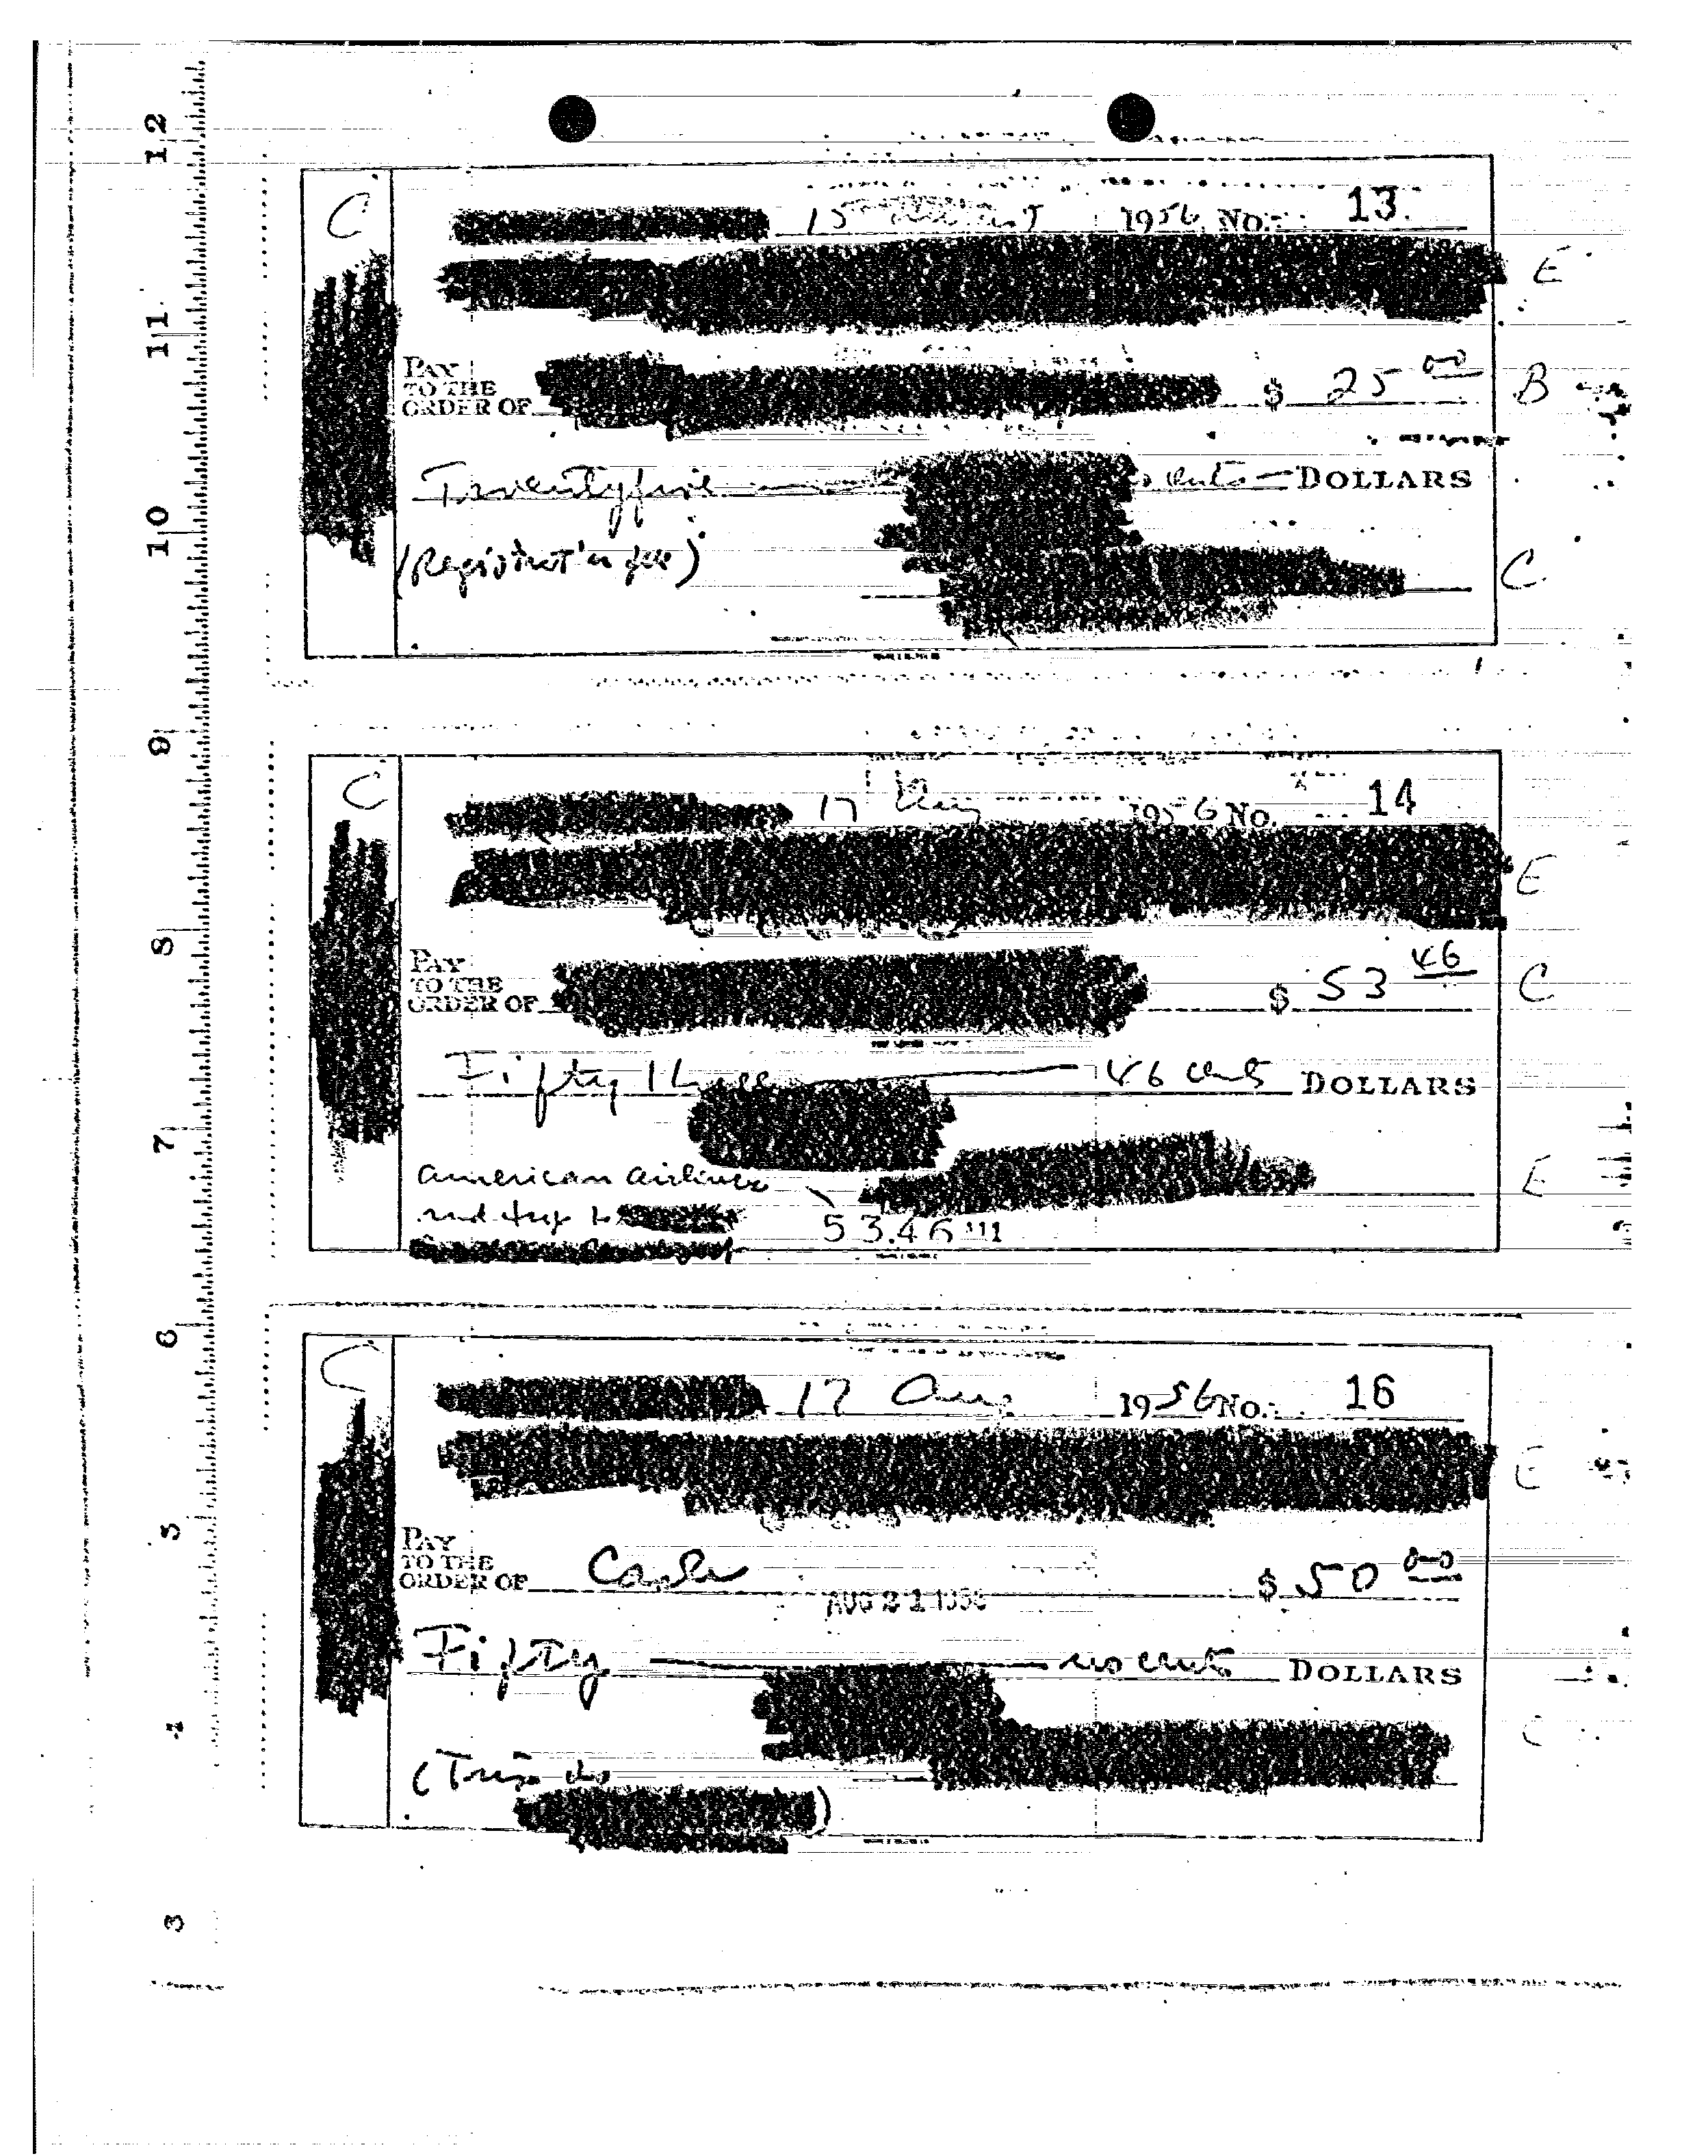 12
11
10
9
8
7
6
5
4
3
C
15 August 1956 No. 13.
E
PAY
TO THE
ORDER OF $ 25 00 B
Twentyfive cents DOLLARS
(Registrat'n fee)
C.
C
17 Aug 1956 No. 14
E
PAY
TO THE
ORDER OF $ 53 46 C
Fifty Three 46 cents DOLLARS
american airlines
E
53.46
C
17 Aug 1956 No. 16
E
PAY
TO THE
ORDER OF Cash $ 50 00
AUG 21 1956
Fifty no cents DOLLARS
C
(Trip to
)